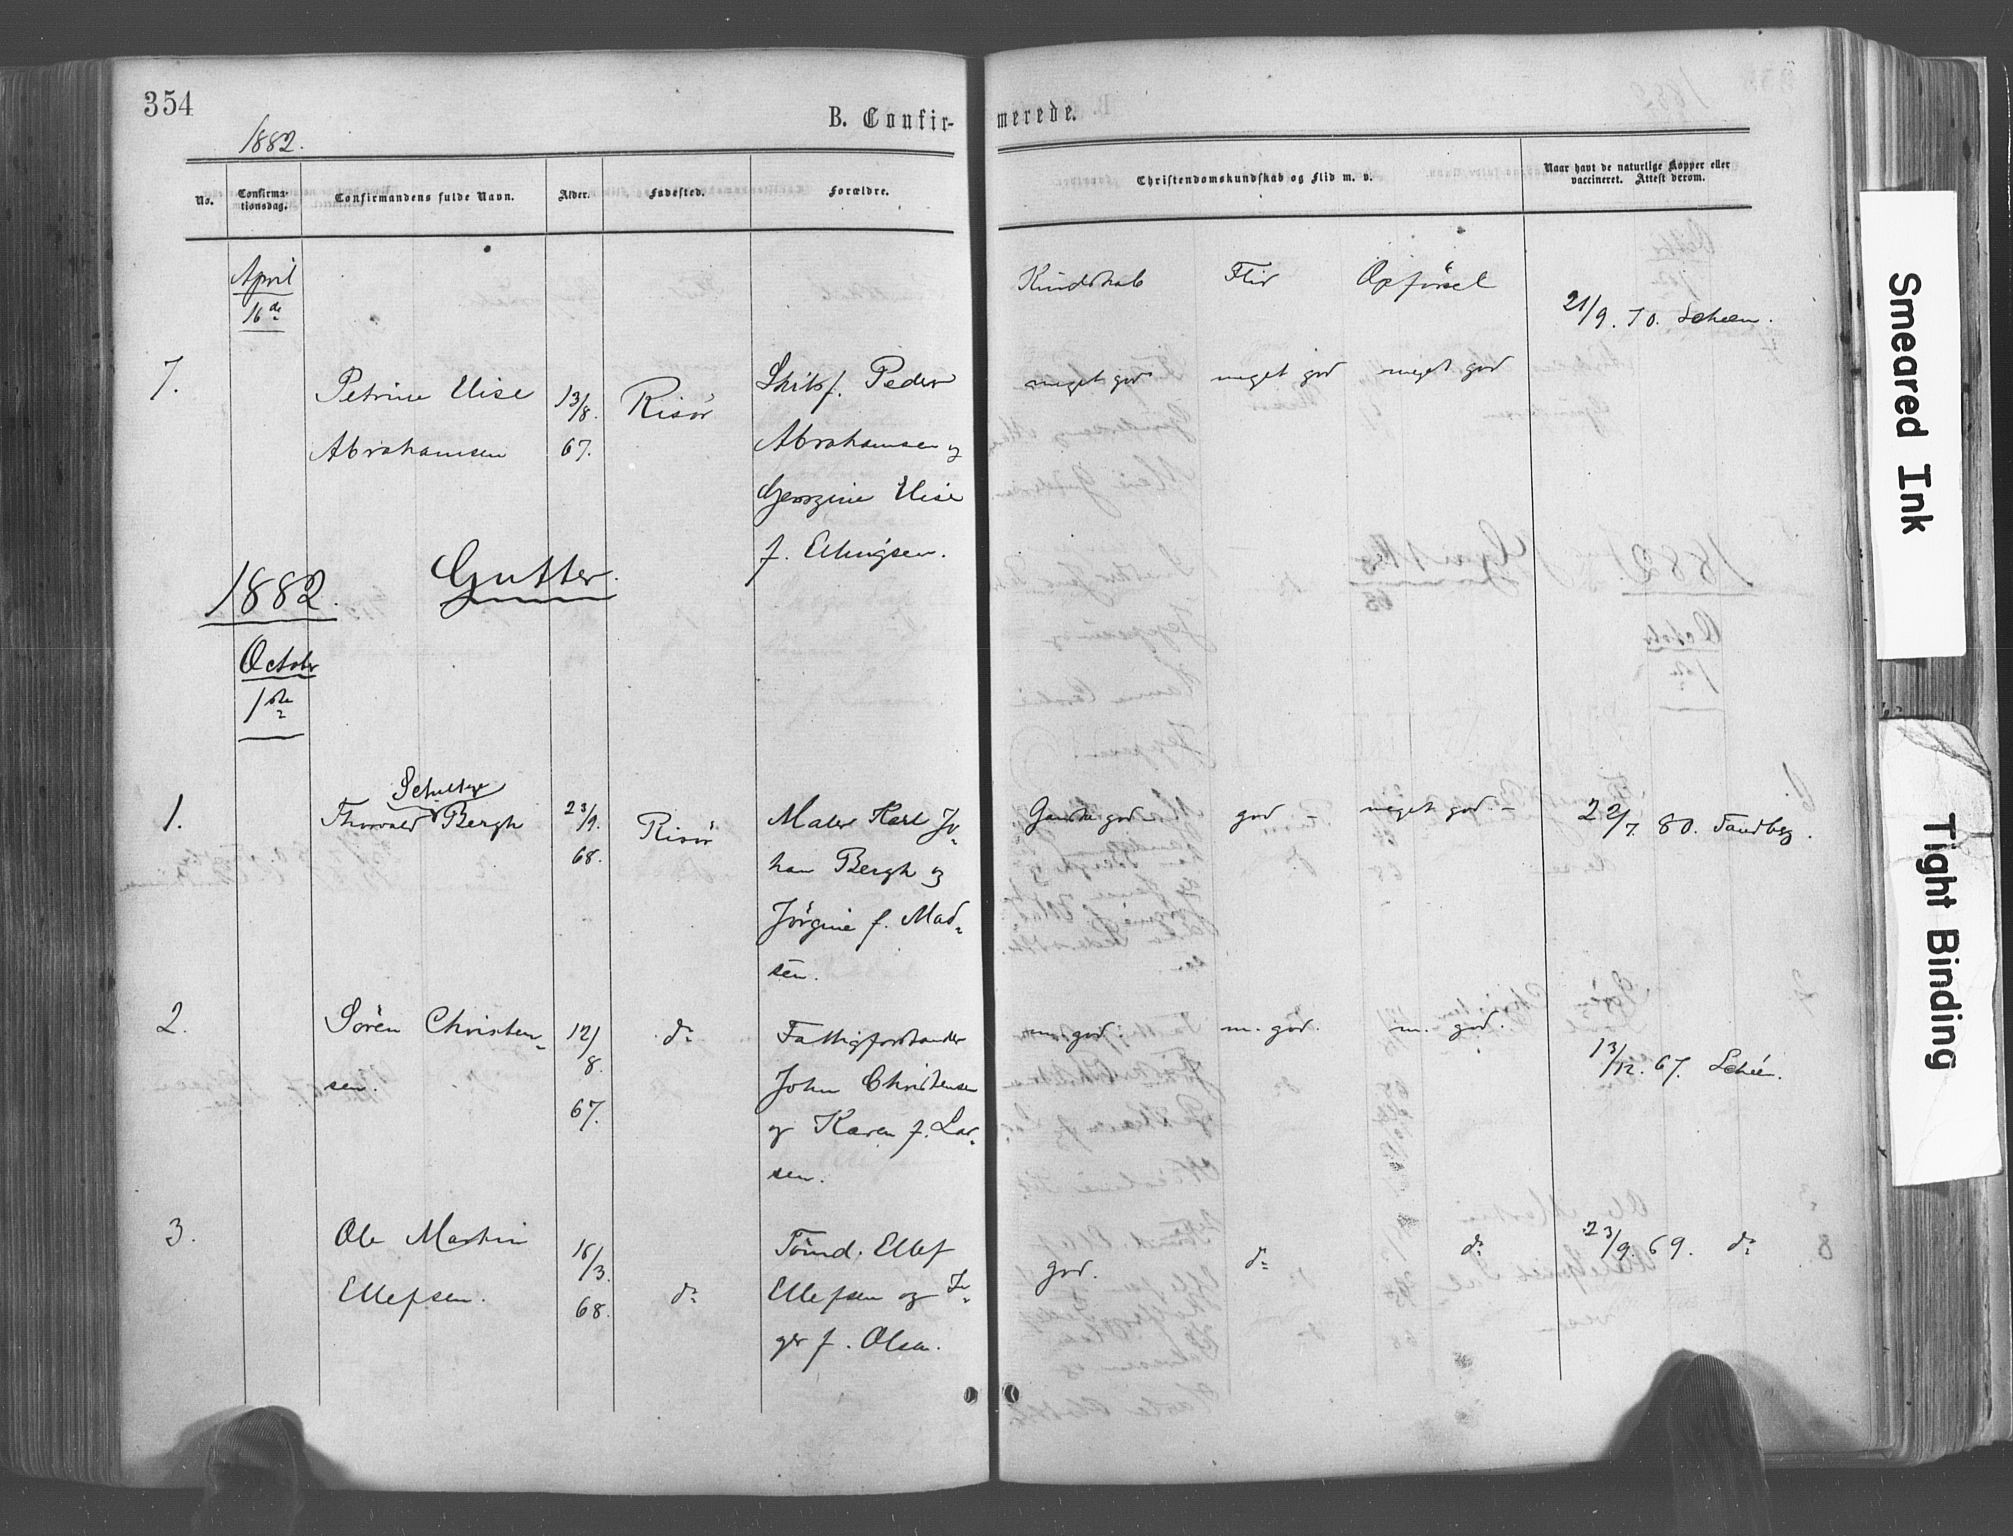 354
B. Confirmerede.
1882.
No. Confirmationsdag. Confirmandens fulde Navn. Alder. Fødested. Forældre. Christendomskundskab og Flid m. v. Naar havt de naturlige Kopper eller vaccineret. Attest derom.
April
16 de
Kundskab Flid Opførsel
21/9. 70. Scheen.
7. Petrine Elise 13/8. Risør Skibsf. Peder meget god meget god meget god
Abrahamsen 67. Abrahamsen og
Georgine Elise
f. Ellingsen.
1882. Gutter.
October
1ste
Schultze
1. Thorvald Bergh 23/9. Risør Maler Karl Jo- Ganske god- god - meget god - 22/7. 80. Tandberg.
68. han Bergh og
Jörgine f. Mad-
sen.
2. Sören Christen- 12/8. do Fattigforstander m. god. m. god. m. god. 13/12. 67. Scheen.
sen. 67. John Christensen
og Karen f. Lar-
sen.
3. Ole Martin 16/3. Tömd. Ellef god. do do 23/9. 69. do
Ellefsen. 68. do Ellefsen og In-
ger f. Olsen.
Smeared Ink
Tight Binding